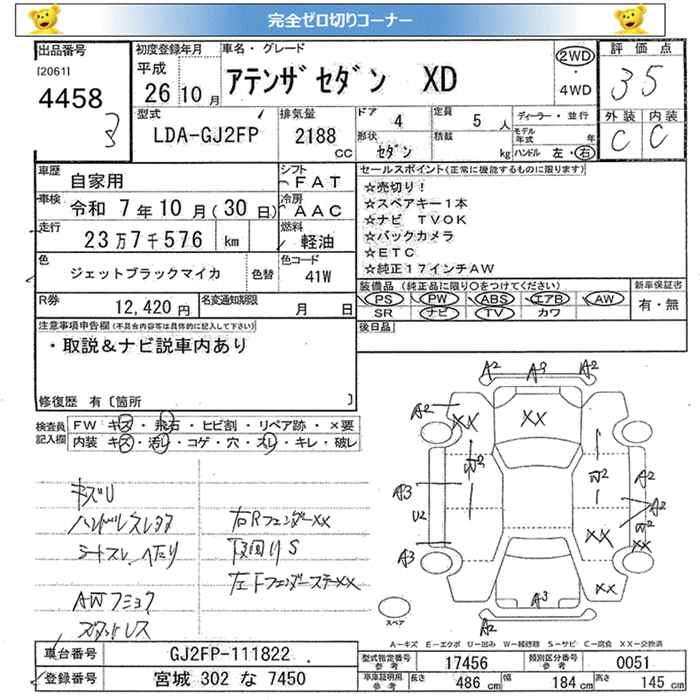 完全ゼロ切りコーナー
出品番号
[2061]
4458
3
初度登録年月
平成
26 10 月
車名・グレード
アテンザセダン XD
2WD
・
4WD
評価点
3 5
外装 内装
C C
型式
LDA-GJ2FP
排気量
2188
cc
ドア
4
定員
5 人
形状
セダン
積載
kg
ディーラー・並行
モデル年式
年
ハンドル 左・右
車歴
自家用
シフト
FAT
車検
令和 7 年 10 月 ( 30 日)
冷房
AAC
走行
23 万 7 千 576 km
燃料
軽油
色
ジェットブラックマイカ
色替
色コード
41W
R券
12,420 円
名変通知期限
月 日
セールスポイント(正常に機能するものに限ります)
☆売切り!
☆スペアキー1本
☆ナビ TVOK
☆バックカメラ
☆ETC
☆純正17インチAW
装備品(純正品に限り○をつけてください)
PS PW ABS エアB AW
SR ナビ TV カワ
新車保証書
有・無
後日品
注意事項申告欄(不具合内容等は具体的に記入して下さい)
・取説&ナビ説車内あり
修復歴 有〔箇所 〕
検査員記入欄
FW キズ・飛石・ヒビ割・リペア跡・×要
内装 キズ・汚レ・コゲ・穴・スレ・キレ・破レ
キズU
ハンドルスレタタ
シートスレ、へたり
AWフミョク
スタットレス
右Rフェンダーxx
下回りS
左Fフェンダーステーxx
A2 A3 A2
A2 XX XX
W2 W2
A3 A2
U2 A2
W2
XX XX
A3
XX
A3
A2
スペア
A-キズ E-エクボ U-凹み W-補修跡 S-サビ C-腐食 XX-交換済
車台番号
GJ2FP-111822
登録番号
宮城 302 な 7450
型式指定番号
参考
17456
類別区分番号
参考
0051
車庫証明用
参考
長さ 486 cm
幅 184 cm
高さ 145 cm